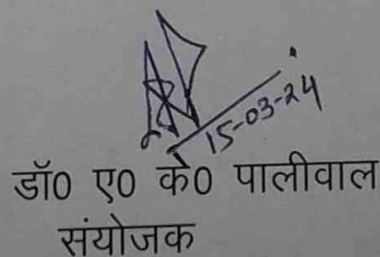 15-03-24
डॉ0 ए0 के0 पालीवाल
संयोजक